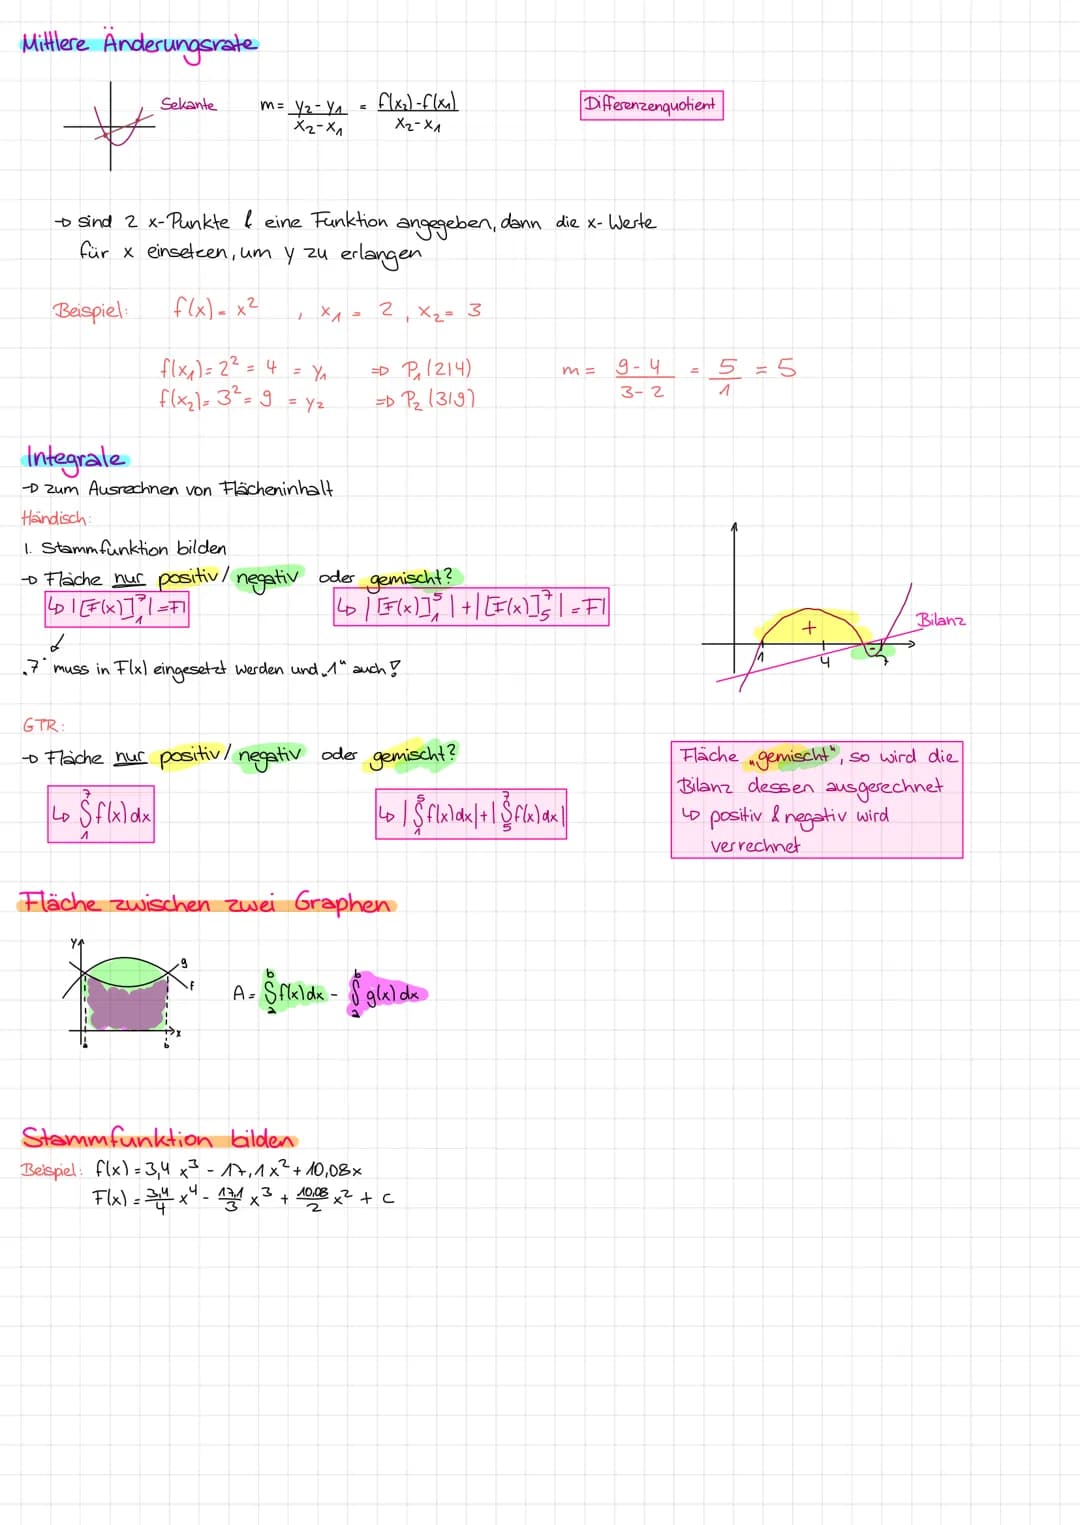 Mittlere Änderungsrate
Sekante
m = y₂-y₁ / x₂-x₁ = f(x₂)-f(x₁) / x₂-x₁
Differenzenquotient
→ sind 2 x-Punkte & eine Funktion angegeben, dann die x-Werte
für x einsetzen, um y zu erlangen
Beispiel: f(x) = x² , x₁ = 2 , x₂ = 3
f(x₁) = 2² = 4 = y₁ ⇒ P₁(2|4)
f(x₂) = 3² = 9 = y₂ ⇒ P₂(3|9)
m = 9-4 / 3-2 = 5/1 = 5
Integrale
→ zum Ausrechnen von Flächeninhalt
Händisch:
1. Stammfunktion bilden
→ Fläche nur positiv/negativ oder gemischt?
↳ |[F(x)]₁⁷| = Fl
↳ |[F(x)]₁⁵| + |[F(x)]₅⁷| = Fl
„7" muss in F(x) eingesetzt werden und „1" auch!
+
-
1
4
7
Bilanz
GTR:
→ Fläche nur positiv/negativ oder gemischt?
↳ ∫₁⁷ f(x)dx
↳ |∫₁⁵ f(x)dx| + |∫₅⁷ f(x)dx|
Fläche „gemischt", so wird die
Bilanz dessen ausgerechnet
↳ positiv & negativ wird
verrechnet
Fläche zwischen zwei Graphen
y
g
f
x
a
b
A = ∫ₐᵇ f(x)dx - ∫ₐᵇ g(x)dx
Stammfunktion bilden
Beispiel: f(x) = 3,4x³ - 17,1x² + 10,08x
F(x) = 3,4/4 x⁴ - 17,1/3 x³ + 10,08/2 x² + c